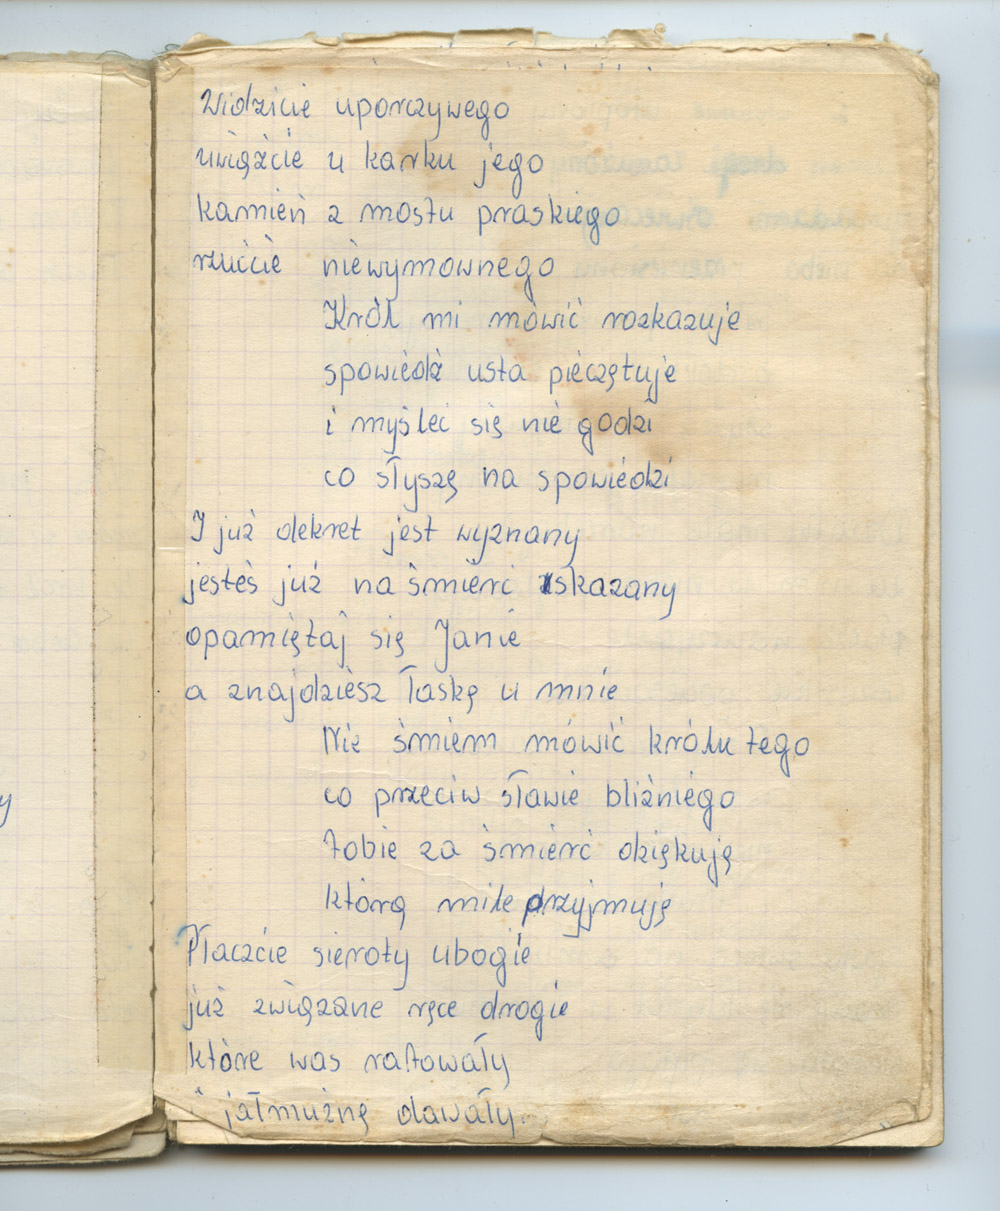 Widzicie uporczywego
uwiążcie u karku jego
kamień z mostu praskiego
rzućcie niewymownego
Król mi mówić rozkazuje
spowiedź usta pieczętuje
i myśleć się nie godzi
co słyszę na spowiedzi
I już dekret jest wyznany
jesteś już na śmierć skazany
opamiętaj się Janie
a znajdziesz łaskę u mnie
Nie śmiem mówić królu tego
co przeciw sławie bliźniego
tobie za śmierć dziękuję
którą mile przyjmuję
Płaczcie sieroty ubogie
już związane ręce drogie
które was ratowały
i jałmużnę dawały.